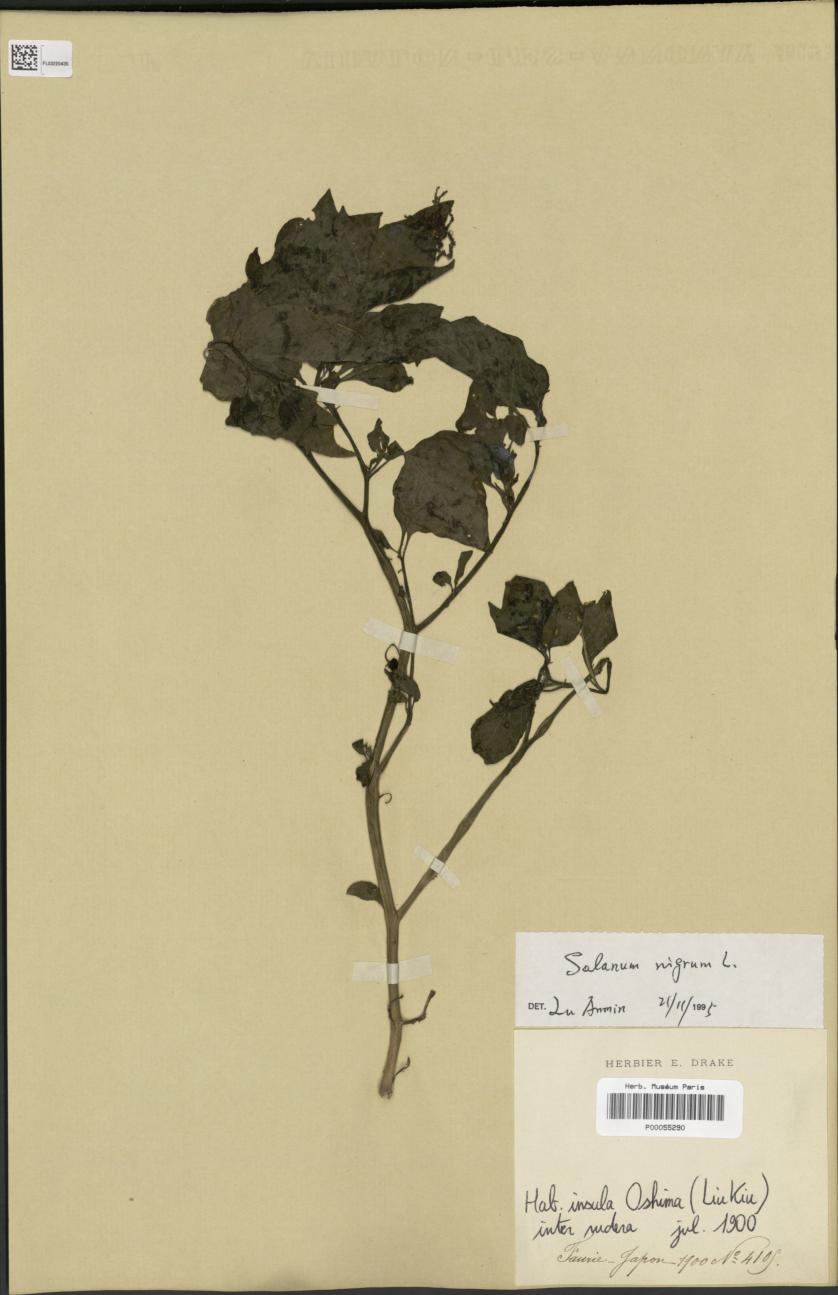 Solanum nigrum L.
DET. Lu Anmin 21/11/1995
HERBIER E. DRAKE
Herb. Muséum Paris
P00055290
Hab. insula Oshima (Liu Kiu)
inter rudera jul. 1900
Faurie - Japon 1900 Nº